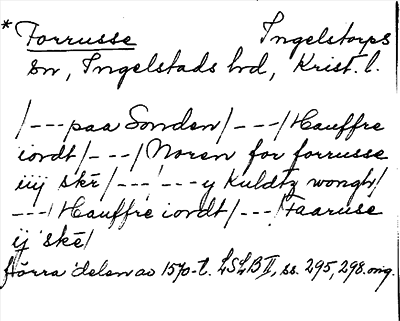 * Forrusse Ingelstorps
sn, Ingelstads hd, Krist. l.
/---paa Sonden/---/Hauffre
iordt/---/Noren for forrusse
iiij skē/---/---y Kuldtz wongh/
---/Hauffre iordt/---/Faaruse
ij skē/
Förra delen av 1570-t. LSLB II, ss. 295, 298. orig.